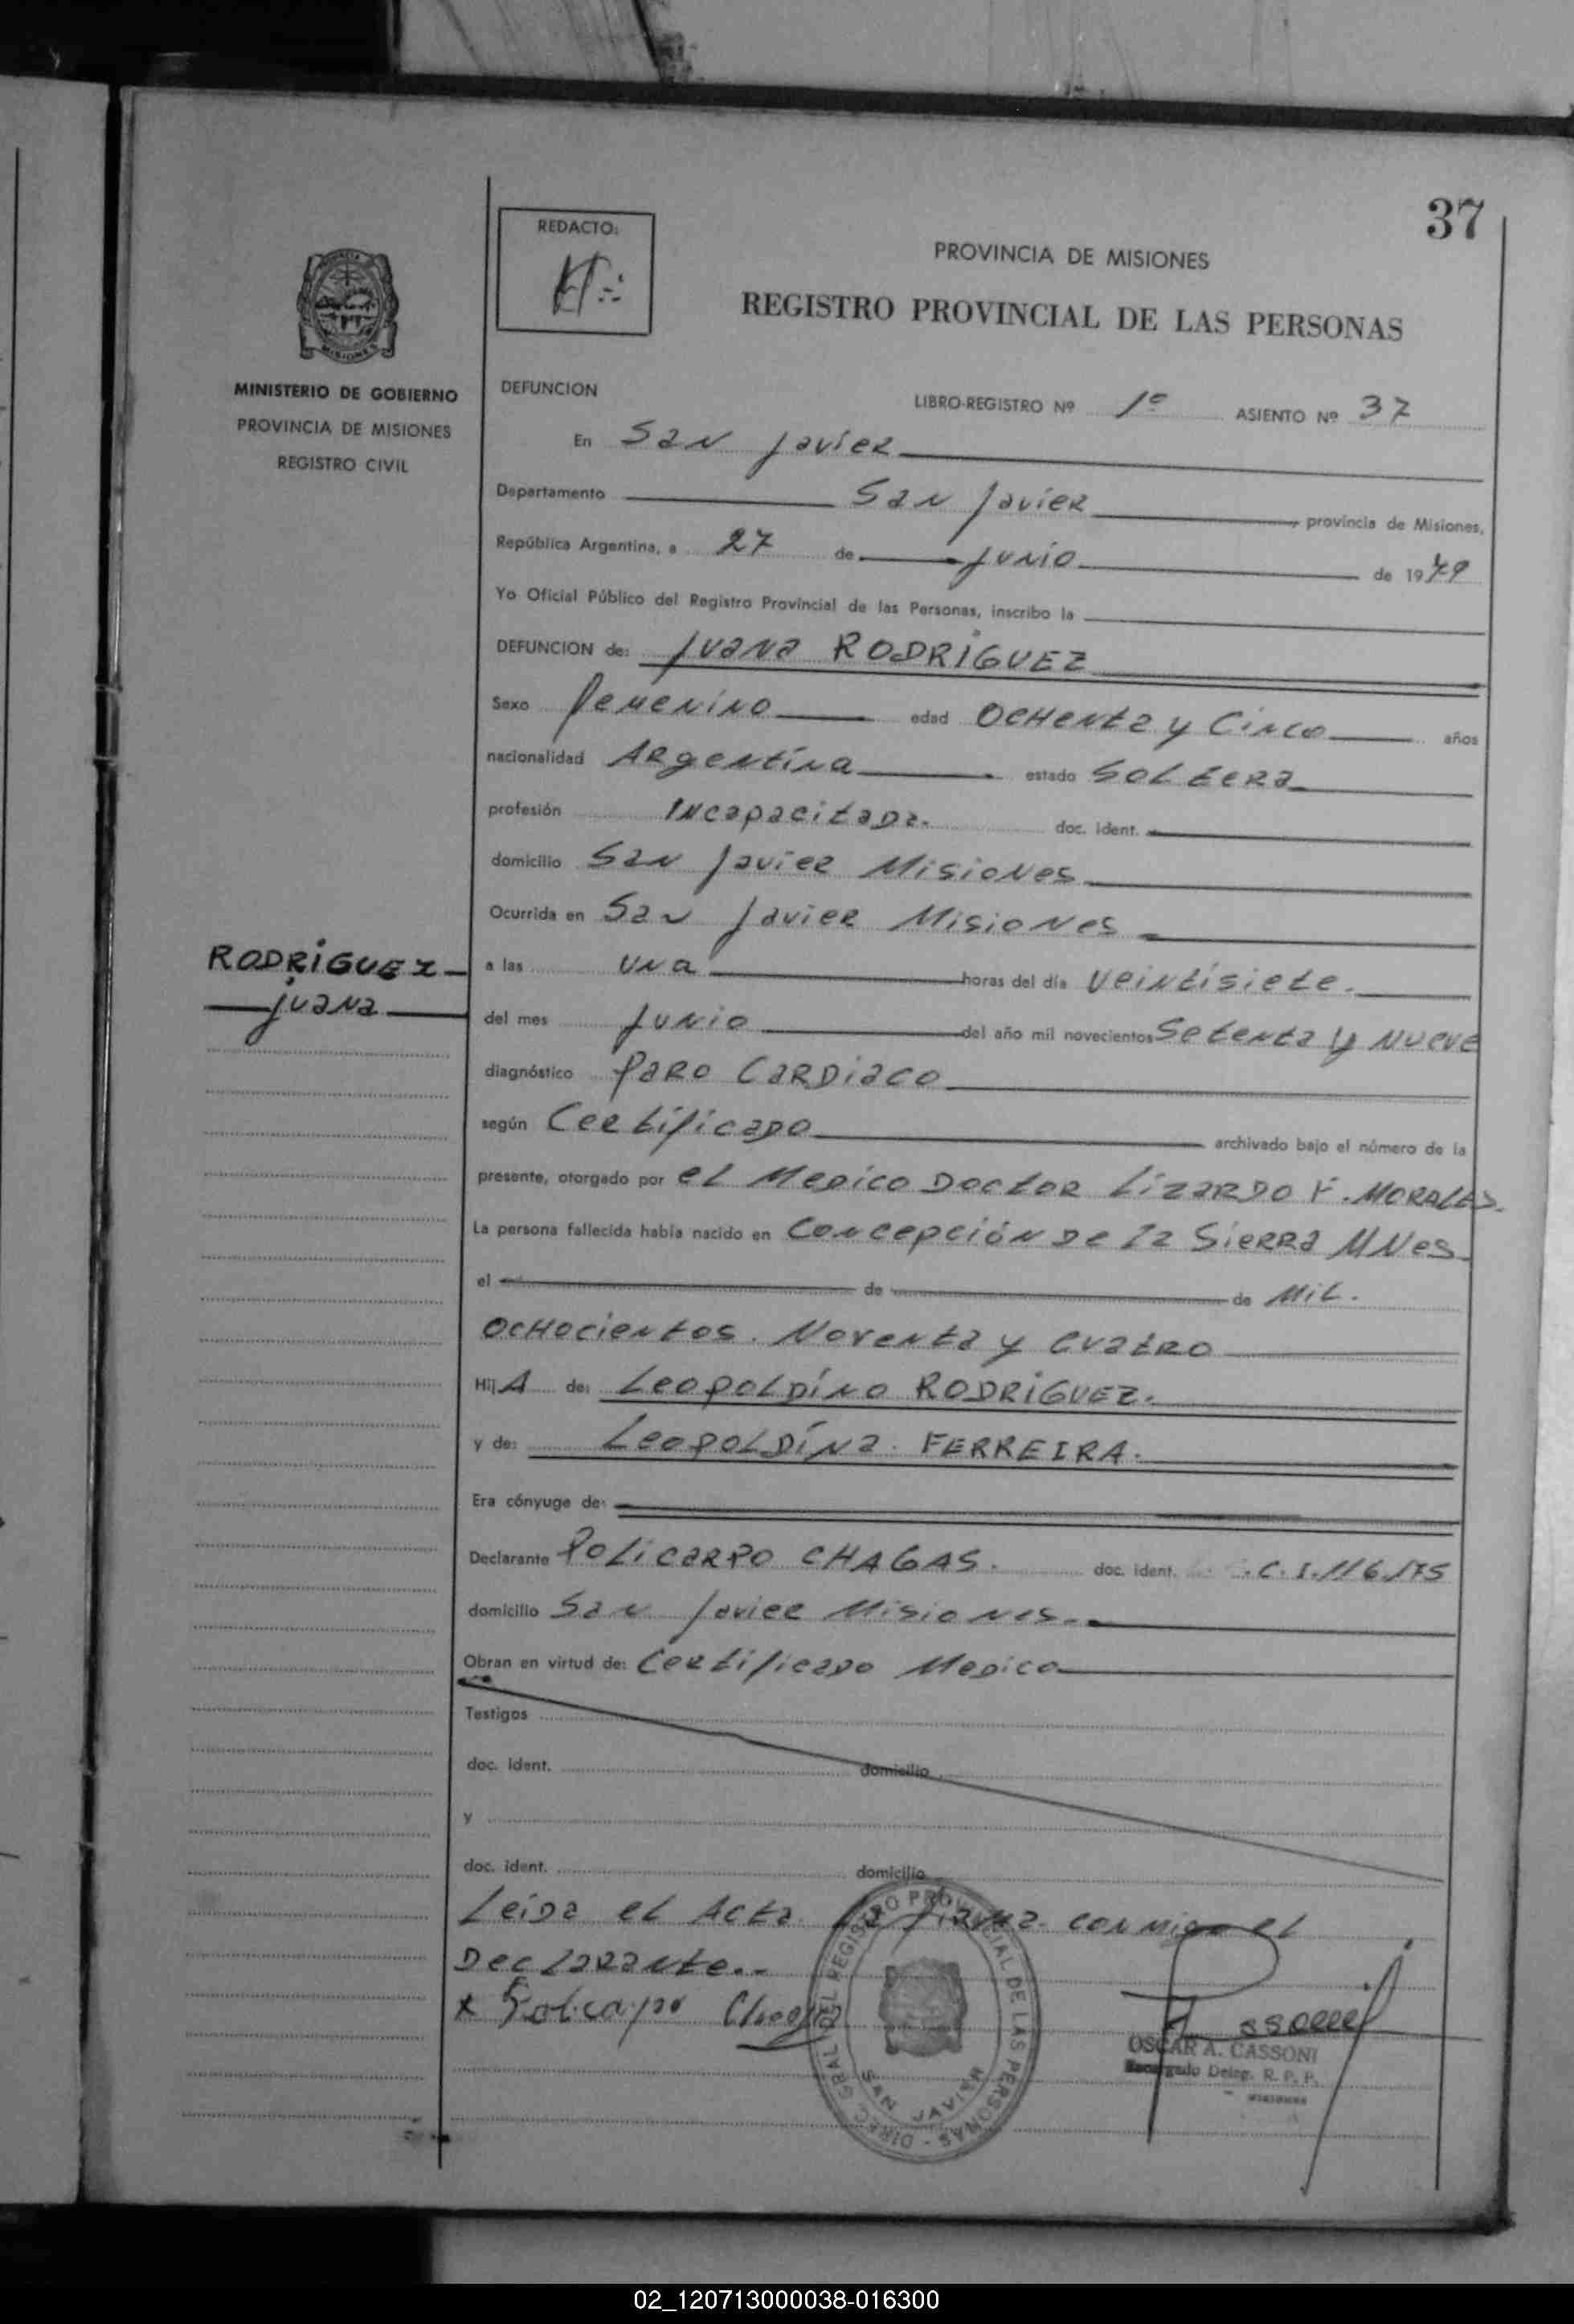 37
REDACTO:
PROVINCIA DE MISIONES
REGISTRO PROVINCIAL DE LAS PERSONAS
MINISTERIO DE GOBIERNO
PROVINCIA DE MISIONES
REGISTRO CIVIL
DEFUNCION
LIBRO-REGISTRO Nº 1º ASIENTO Nº 37
En San Javier
Departamento San Javier, provincia de Misiones,
República Argentina, a 27 de Junio de 1979
Yo Oficial Público del Registro Provincial de las Personas, inscribo la
DEFUNCION de: Juana RODRiGUEZ
Sexo femenino edad OCHenta y Cinco años
nacionalidad Argentina estado SOLtera
profesión Incapacitada. doc. ident.
domicilio San Javier Misiones
Ocurrida en San Javier Misiones
RODRiGUEZ
Juana
a las una horas del día veintisiete.
del mes Junio del año mil novecientos Setenta y nueve
diagnóstico Paro Cardiaco
según Certificado archivado bajo el número de la
presente, otorgado por el Medico Doctor Lizardo F. MORALES.
La persona fallecida había nacido en Concepción de la Sierra MNes
el de de MiL.
OCHOcientos. Noventa y cuatro
Hij A de: Leopoldino RODRiGUEZ.
y de: Leopoldína. FERREIRA.
Era cónyuge de:
Declarante Policarpo CHAGAS. doc. ident. C.I. 116.175
domicilio San Javier Misiones.
Obran en virtud de: Certificado Medico
Testigos
doc. ident. domicilio
y
doc. ident. domicilio
Leida el Acta la firma conmigo el
Declarante.-
x Policarpo Chagas
DIREC. GRAL. DEL REGISTRO PROVINCIAL DE LAS PERSONAS -
SAN JAVIER
OSCAR A. CASSONI
Encargado Deleg. R. P. P.
MISIONES
02_120713000038-016300